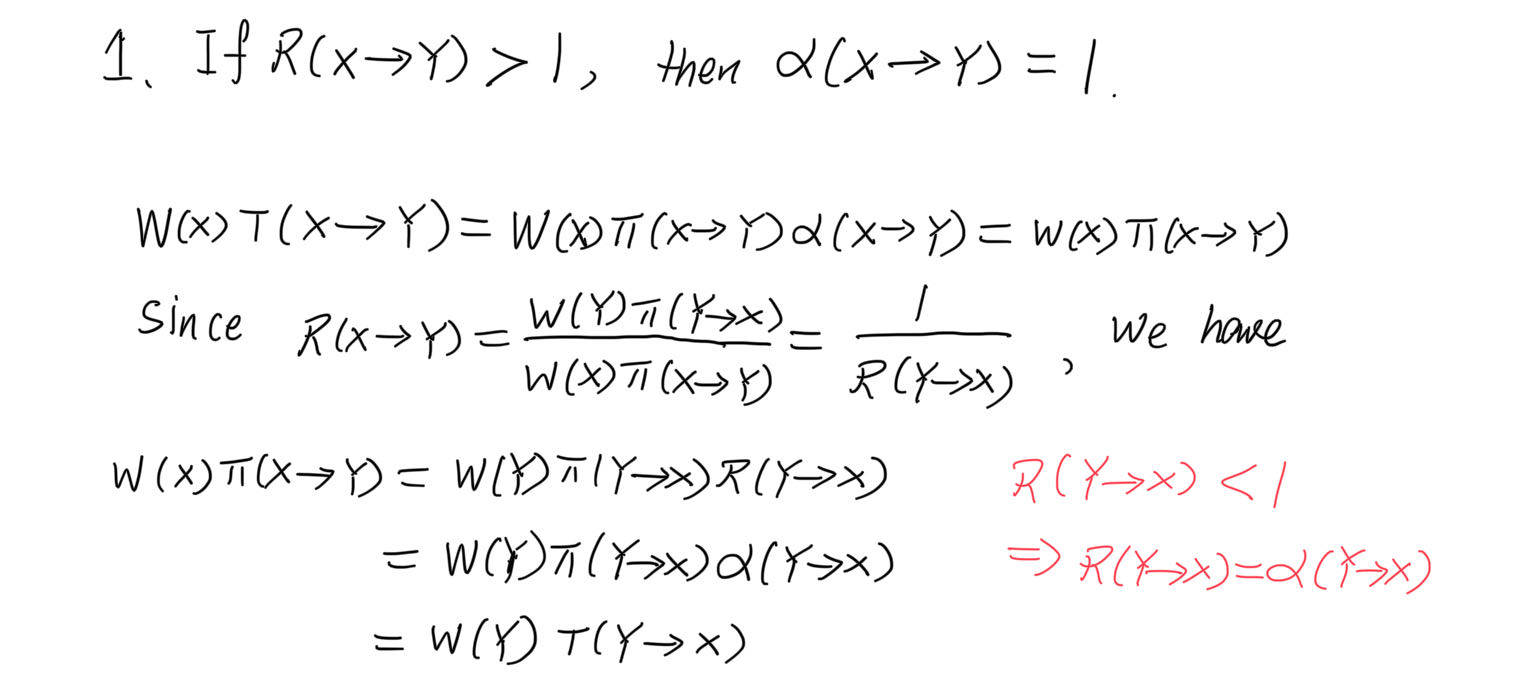 1. If R(X→Y) > 1, then α(X→Y) = 1.
W(X)T(X→Y) = W(X)π(X→Y)α(X→Y) = W(X)π(X→Y)
Since R(X→Y) = W(Y)π(Y→X) / W(X)π(X→Y) = 1 / R(Y→X), we have
W(X)π(X→Y) = W(Y)π(Y→X)R(Y→X) R(Y→X) < 1
= W(Y)π(Y→X)α(Y→X) ⇒ R(Y→X)=α(Y→X)
= W(Y)T(Y→X)